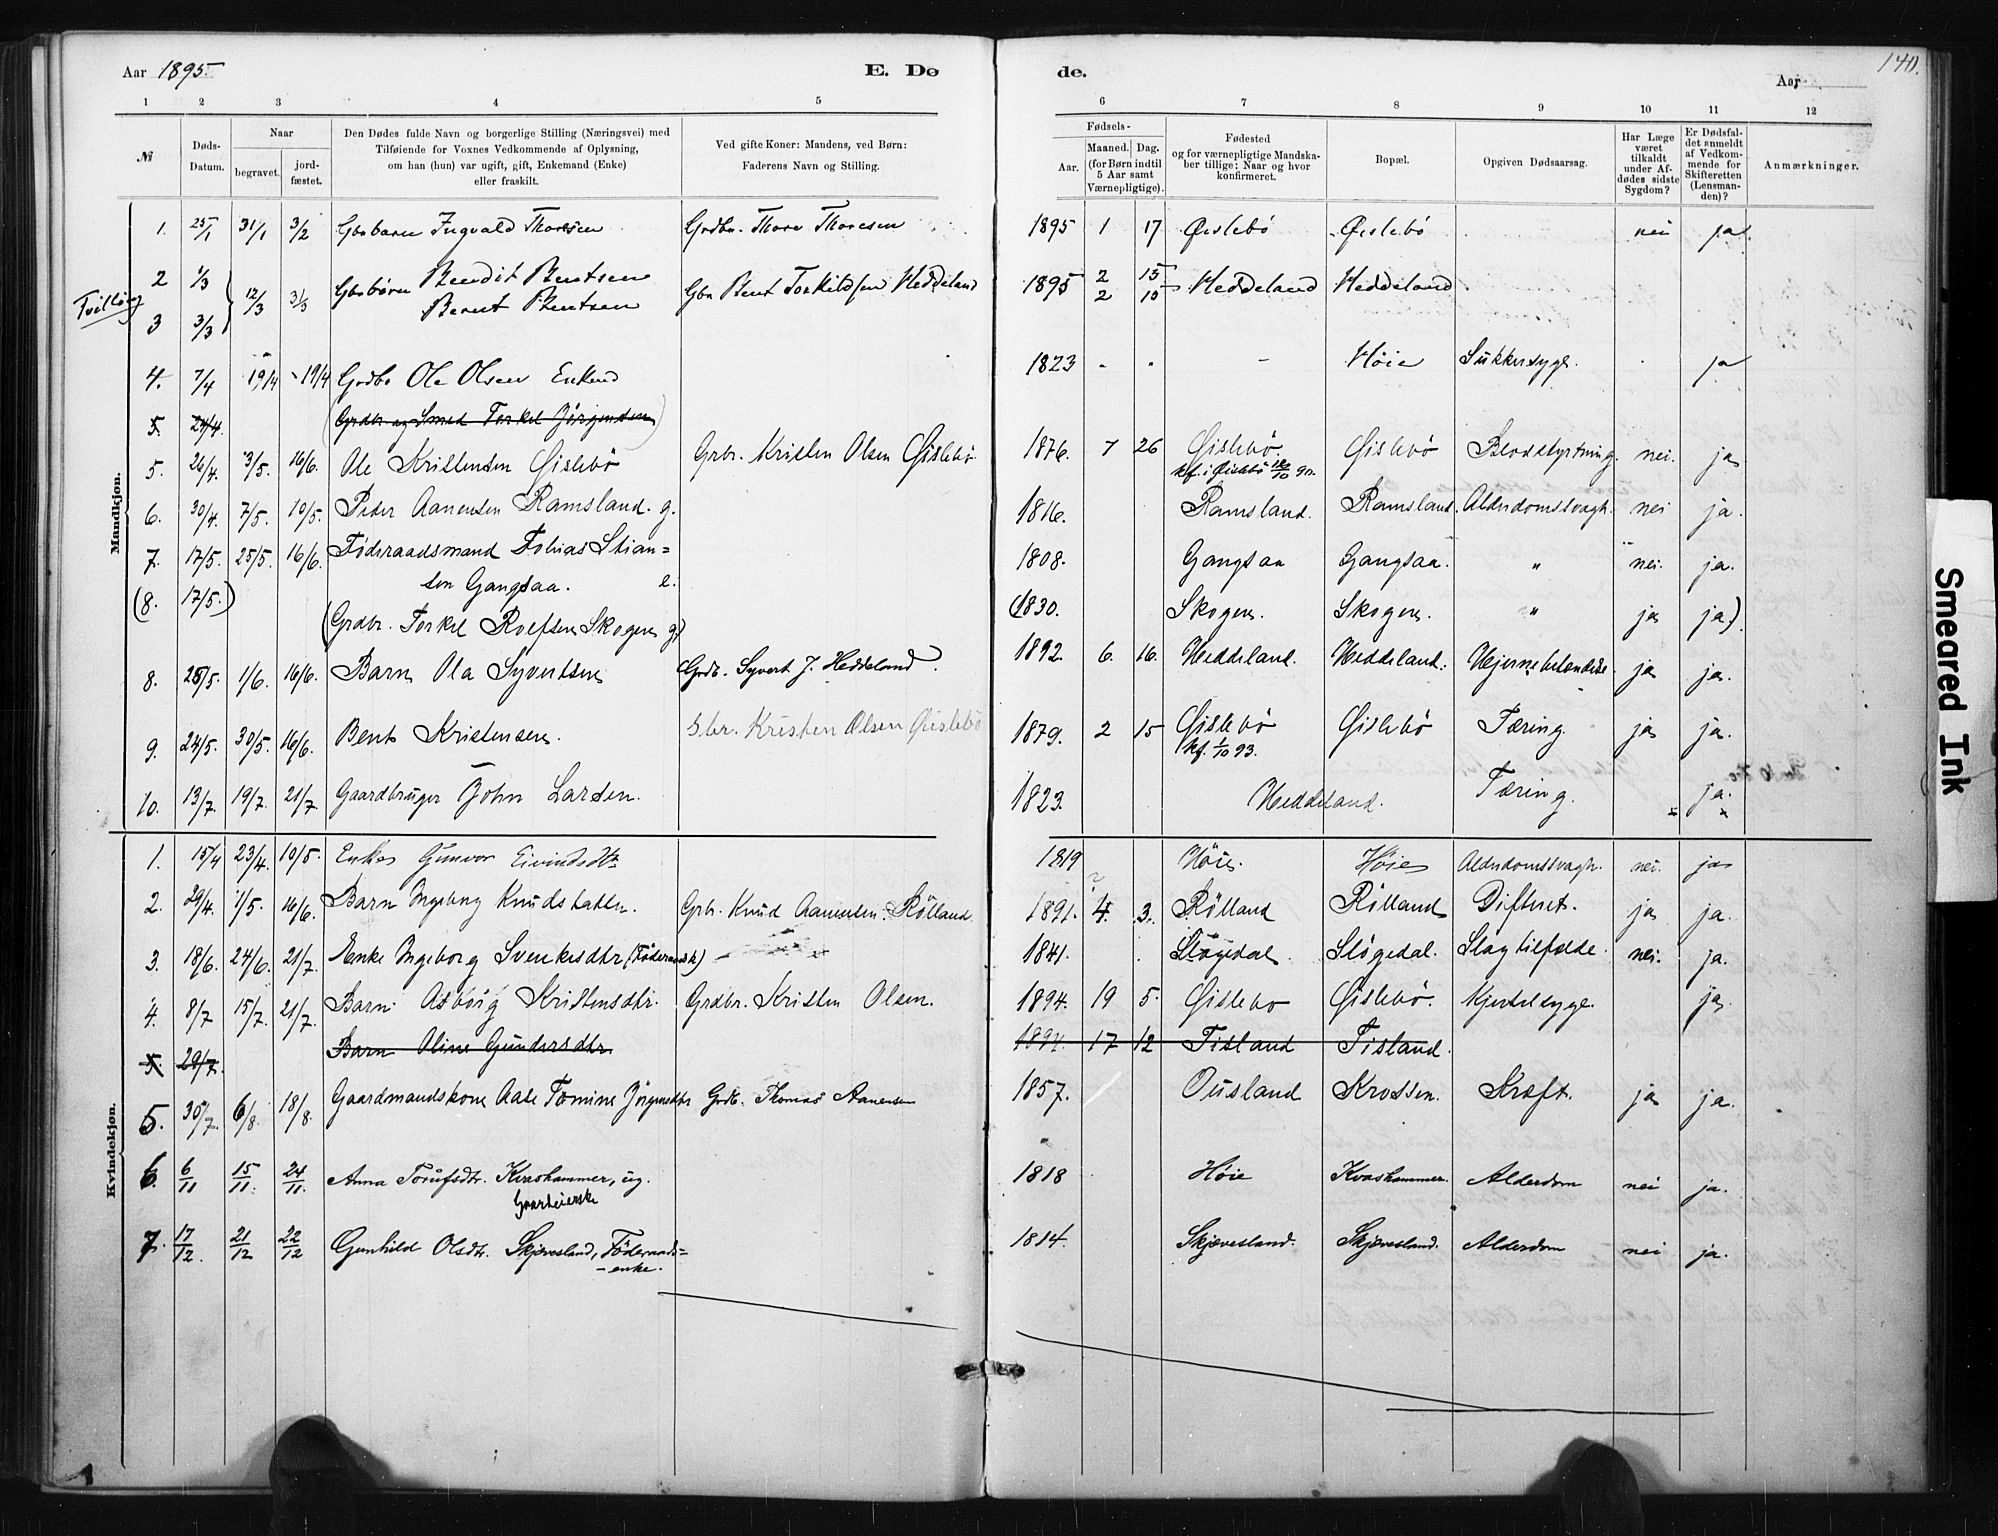 Aar 1895.
E. Dø
de.
Aar
140.
1 2 3 4 5 6 7 8 9 10 11 12
№
Døds-
Datum.
Naar
begravet.
jord-
fæstet.
Den Dødes fulde Navn og borgerlige Stilling (Næringsvei) med
Tilføiende for Voxnes Vedkommende af Oplysning,
om han (hun) var ugift, gift, Enkemand (Enke)
eller fraskilt.
Ved gifte Koner: Mandens, ved Børn:
Faderens Navn og Stilling.
Fødsels-
Aar.
Maaned. Dag.
(for Børn indtil
5 Aar samt
Værnepligtige).
Fødested
og for værnepligtige Mandska-
ber tillige: Naar og hvor
konfirmeret.
Bopæl.
Opgiven Dødsaarsag.
Har Læge
været
tilkaldt
under Af-
dødes sidste
Sygdom?
Er Dødsfal-
det anmeldt
af Vedkom-
mende for
Skifteretten
(Lensman-
den)?
Anmærkninger.
Mandkjøn.
1. 25/1 31/1 3/2 Gbrbarn Ingvald Thoresen Grdbr. Thore Thoresen 1895 1 17 Øislebö Øislebö nei ja.
Tvilling
2 1/3 12/3 3/3 Gbrbörn Bendit Bentsen Gbr Bent Torkildsen Heddeland 1895 2 15 Heddeland Heddeland
3 3/3 Berent Bentsen 2 15
4. 7/4 19/4 19/4 Grdbr Ole Olsen Enkem 1823 - . - Höie Sukkersyge. . ja
5. 24/4. (Grdbr og Smed Torkel Jörgensen)
5. 26/4. 3/5. 16/6. Ole Kristensen Øislebö Grbr. Kristen Olsen Øislebö 1876. 7 26 Øislebö. Øislebö Blodstyrtning. nei. ja
kf. i Øislebö
6. 30/4. 7/5. 10/5. Peder Aanensen Ramsland. g. 1816. Ramsland. Ramsland. Alderdomssvagh. nei ja.
7. 17/5. 25/5. 16/6. Föderaadsmand Tobias Stian=
sen Gangsaa. e. 1808. Gangsaa Gangsaa. " nei. ja.
(8. 17/5.) (Grdbr. Torkel Rolfsen Skogen g.) (1830. Skogen. Skogen. " ja ja.)
8. 28/5. 1/6. 16/6. Barn Ola Syvertsen Grdb. Syvert J. Heddeland. 1892. 6. 16. Heddeland. Heddeland. Hjernebetændelse. ja ja.
9. 24/5. 30/5. 16/6. Bent Kristensen. Gbr. Kristen Olsen Øislebö 1879. 2 15 Øislebö Øislebö Tæring. ja ja.
kf. 1/10 93.
10. 13/7. 19/7. 21/7. Gaardbruger John Larsen. 1823. Heddeland. Tæring. ja.
Kvindekjøn.
1. 15/4 23/4. 10/5. Enke Gunvor Eivindsdtr 1819 Höie. Höie Alderdomssvagh. nei. ja
2. 29/4. 1/5. 16/6. Barn Ingeborg Knudsdatter. Grbr. Knud Aanensen. Rölland 1891. 4. 3. Rölland Rölland Difterit. ja ja.
3. 18/6. 24/6. 21/7. Enke Ingeborg Svenkesdtr (Föderaadsk) 1841. Stögedal. Stögedal. Slagtilfælde. nei. ja.
4. 8/7 15/7. 21/7. Barn Asborg Kristensdtr. Grdbr. Kristen Olsen. 1894. 19 5. Øislebö Øislebö. Kjertelsyge. ja.
5. 29/7. Barn Oline Gundersdtr 1894. 17 12 Tisland Tisland.
5. 30/7. 6/8. 18/8. Gaardmandskone Aase Tomine Jörgensdtr Grdb. Thomas Aanensen 1857. Ousland Krossen. Kræft. ja ja.
6. 6/11 15/11. 24/11. Anna Torufsdtr. Kvashammer, ug. 1818 Höie Kvashammer. Alderdom nei ja.
Gaardeierske
7. 17/12. 21/12 22/12 Gunhild Olsdtr. Skjævesland, Föderaads=
=enke. 1814. Skjævesland. Skjævesland. Alderdom nei ja.
Smeared Ink